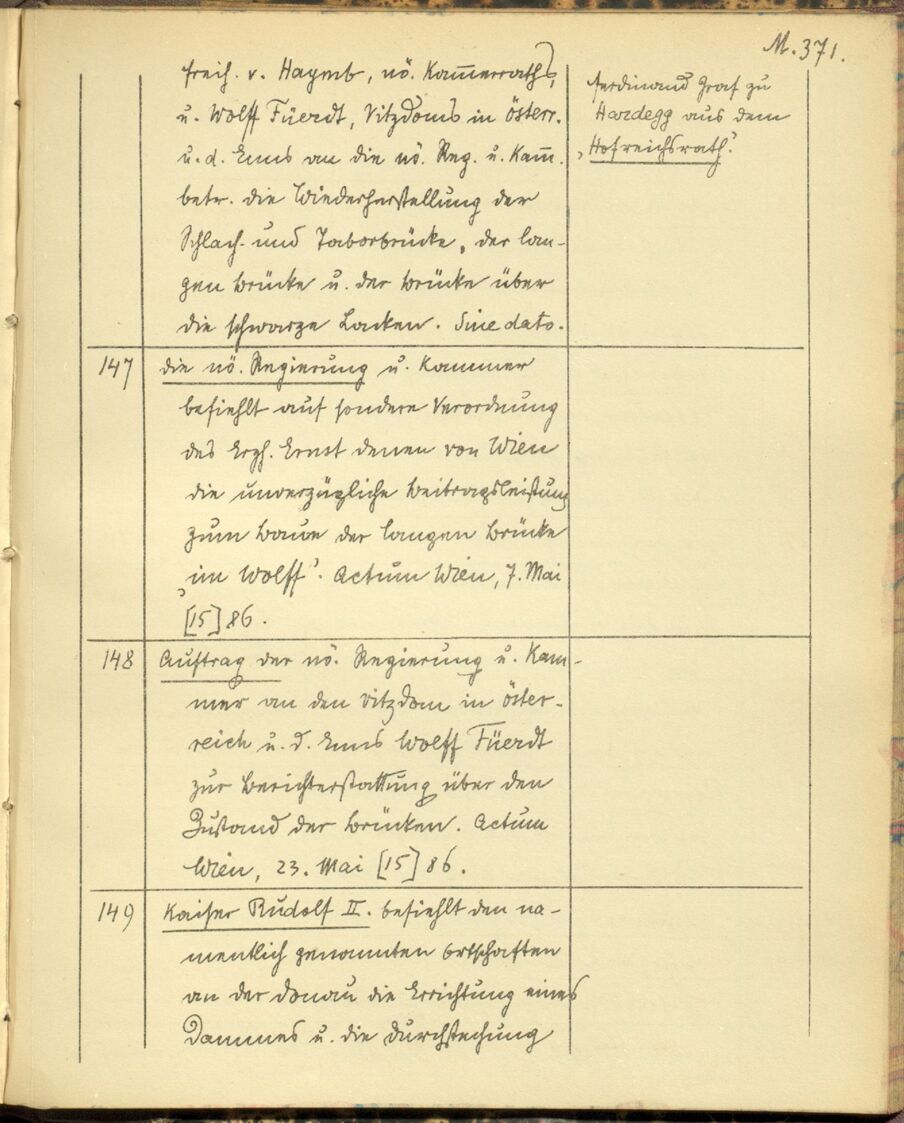 M. 371.
freih. v. Haymb, nö. Kam̅erraths,
u. Wolff Füerdt, Vitzdoms in österr.
u. d. Enns an die nö. Reg. u. Kam̅.
betr. die Wiederherstellung der
Schlach- und Taborbrücke, der lan-
gen Brücke u. der Brücke über
die schwarze Lacken. Sine dato.
Ferdinand Graf zu
Hardegg aus dem
„Hofreichsrath“.
147 die nö. Regierung u. Kammer
befiehlt auf sondere Verordnung
des Erzh. Ernst denen von Wien
die unverzügliche Beitragsleistung
zum Baue der langen Brücke
„im Wolff“. Actum Wien, 7. Mai
[15]86.
148 Auftrag der nö. Regierung u. Kam-
mer an den Vitzdom in öster-
reich u. d. Enns Wolff Füerdt
zur Berichterstattung über den
Zustand der Brücken. Actum
Wien, 23. Mai [15]86.
149 Kaiser Rudolf II. befiehlt den na-
mentlich genannten Ortschaften
an der Donau die Errichtung eines
Dammes u. die Durchstechung